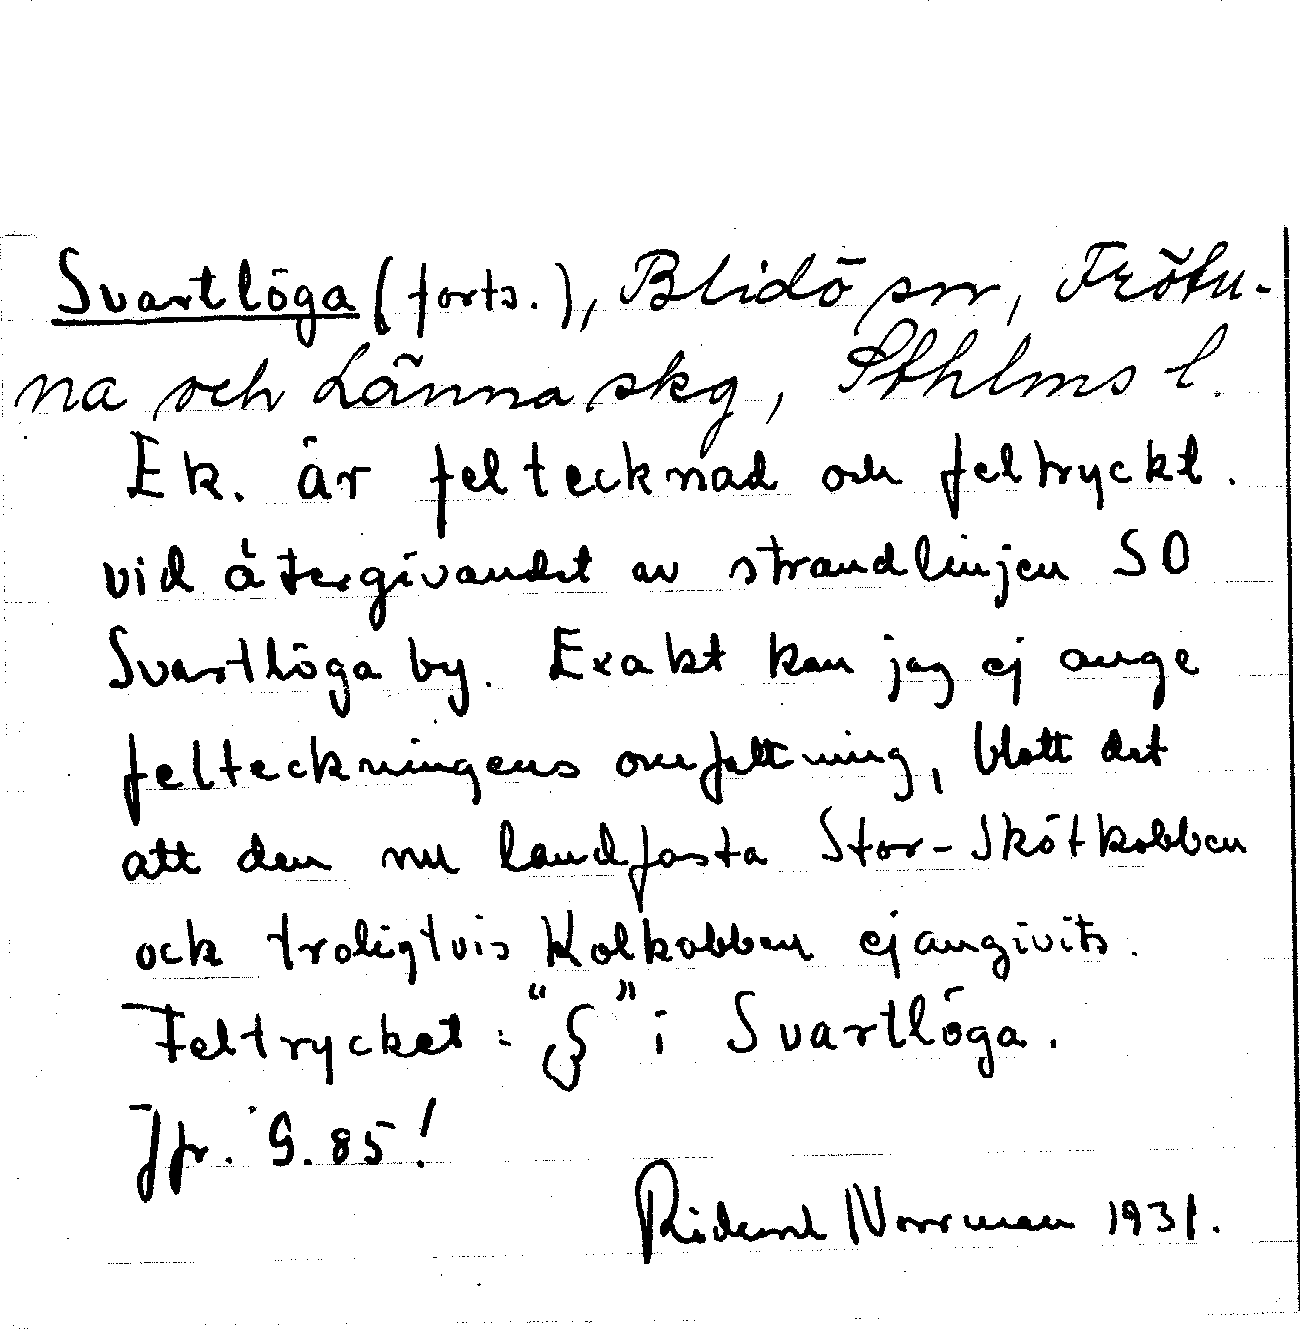 Svartlöga (forts.), Blidö sn, Frötu-
na och Länna skg, Sthlms l.
Ek. är feltecknad och feltryckt.
vid återgivandet av strandlinjen SO
Svartlöga by. Exakt kan jag ej ange
felteckningens omfattning, blott det
att den nu landfasta Stor-Skötkobben
ock troligtvis Kolkobben ej angivits.
Feltrycket: "§" i Svartlöga.
Jfr. G. 85!
Norrman 1931.